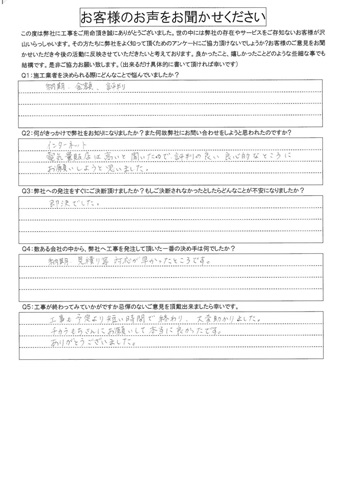 お客様のお声をお聞かせください
この度は弊社に工事をご用命頂き誠にありがとうございました。世の中には弊社の存在やサービスをご存知ないお客様が沢
山いらっしゃいます。その方たちに弊社をよく知って頂くためのアンケートにご協力頂けないでしょうか?お客様のご意見をお聞
かせいただき今後の活動に反映させていただきたいと考えております。良かったこと、嬉しかったことどのような些細な事でも
結構です。是非ご協力お願い致します。(出来るだけ具体的に書いて頂ければ幸いです)
Q1:施工業者を決められる際にどんなことで悩んでいましたか?
納期、金額、評判
Q2:何がきっかけで弊社をお知りになりましたか?また何故弊社にお問い合わせをしようと思われたのですか?
インターネット
電気量販店は高いと聞いたので、評判の良い良心的なところに
お願いしようと思いました。
Q3:弊社への発注をすでにご決断頂けましたか?もしご決断されなかったとしたらどんなことが不安になりましたか?
即決でした。
Q4:数ある会社の中から、弊社へ工事を発注して頂いた一番の決め手は何でしたか?
納期、見積り等 対応が早かったところです。
Q5:工事が終わってみていかがですか忌憚のないご意見を頂戴出来ましたら幸いです。
工事も予定より短い時間で終わり、大変助かりました。
さんにお願いして本当に良かったです。
ありがとうございました。